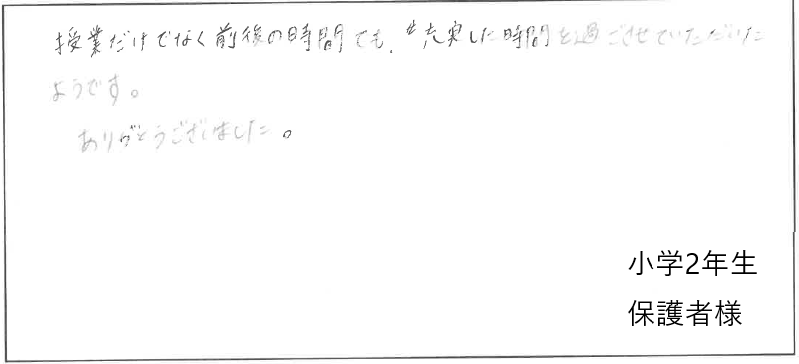 授業だけでなく前後の時間でも、充実した時間を過ごさせていただいた
ようです。
ありがとうございました。
小学2年生
保護者様